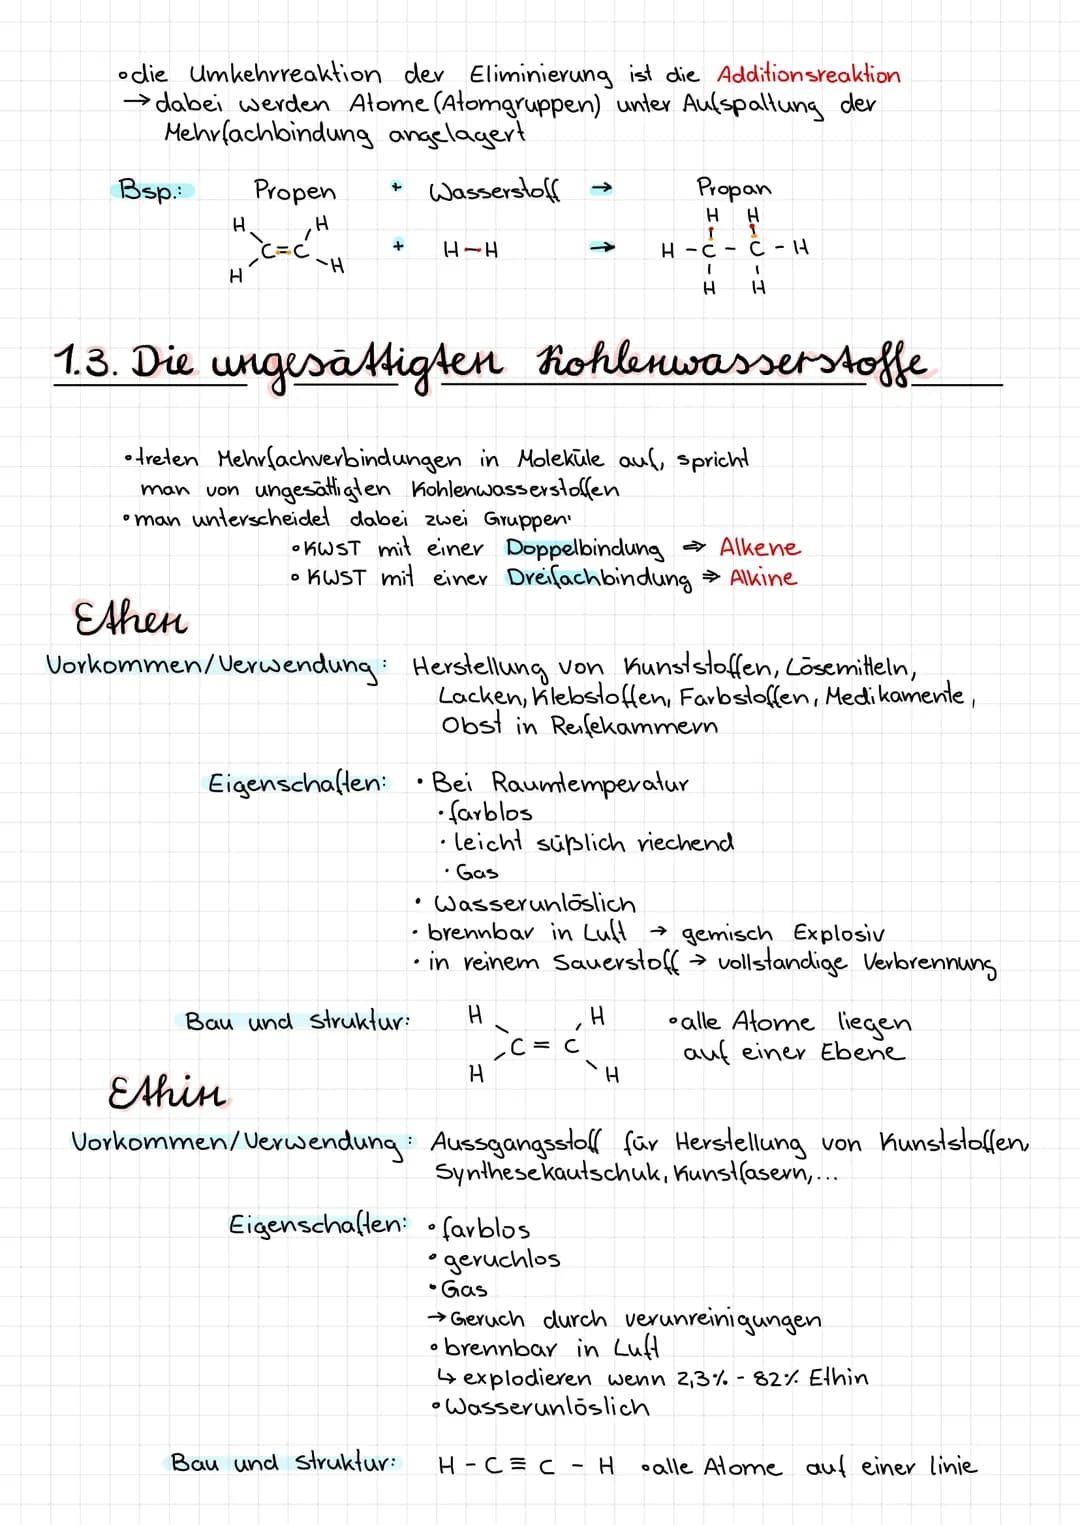 • die Umkehrreaktion der Eliminierung ist die Additionsreaktion
→ dabei werden Atome (Atomgruppen) unter Aufspaltung der
Mehrfachbindung angelagert
Bsp.: Propen + Wasserstoff → Propan
H H H H
C=C + H-H → H-C-C-H
H H H H
1.3. Die ungesättigten Kohlenwasserstoffe
• treten Mehrfachverbindungen in Moleküle auf, spricht
man von ungesättigten Kohlenwasserstoffen
• man unterscheidet dabei zwei Gruppen:
• KWST mit einer Doppelbindung ⇒ Alkene
• KWST mit einer Dreifachbindung ⇒ Alkine
Ethen
Vorkommen/Verwendung: Herstellung von Kunststoffen, Lösemitteln,
Lacken, Klebstoffen, Farbstoffen, Medikamente,
Obst in Reifekammern
Eigenschaften: • Bei Raumtemperatur
• farblos
• leicht süßlich riechend
• Gas
• Wasserunlöslich
• brennbar in Luft → gemisch Explosiv
• in reinem Sauerstoff → vollstandige Verbrennung
Bau und Struktur: H H • alle Atome liegen
C = C auf einer Ebene
H H
Ethin
Vorkommen/Verwendung: Aussgangsstoff für Herstellung von Kunststoffen,
Synthesekautschuk, Kunstfasern,...
Eigenschaften: • farblos
• geruchlos
• Gas
→ Geruch durch verunreinigungen
• brennbar in Luft
↳ explodieren wenn 2,3% - 82% Ethin
• Wasserunlöslich
Bau und Struktur: H - C ≡ C - H • alle Atome auf einer linie